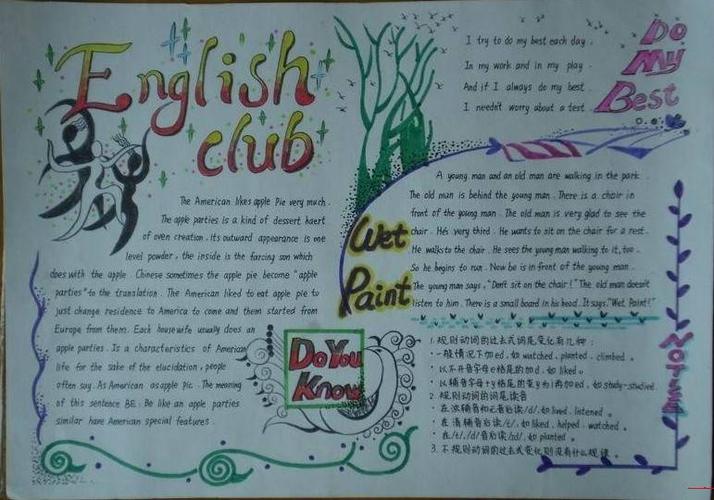 English
club
The American likes apple Pie very much.
The apple parties is a kind of dessert haert
of oven creation. Its outward appearance is one
level powder, the inside is the farcing sun which
does with the apple. Chinese sometimes the apple pie become "apple
parties" to the translation. The American liked to eat apple pie to
just change residence to America to come and them started from
Europe from them. Each housewife usually does an
apple parties. Is a characteristics of American
life for the sake of the elucidation, people
often say. As American as apple pic. The meaning
of this sentence BE: Be like an apple parties
similar have American special features.
Do You
Know
I try to do my best each day.
In my work and in my play.
And if I always do my best.
I needn't worry about a test.
Do
My
Best
Wet
Paint
A young man and an old man are walking in the park.
The old man is behind the young man. There is a chair in
front of the young man. The old man is very glad to see the
chair. He's very third. He wants to sit on the chair for a rest.
He walks to the chair. He sees the young man walking to it, too.
So he begins to run. Now be is in front of the young man.
The young man says, "Don't sit on the chair!" The old man doesn't
listen to him. There is a small board in his head. It says, "Wet Paint!"
1. 规则动词的过去式词尾变化有几种:
· 一般情况下加ed, 如 watched, planted, climbed。
· 以不发音字母e结尾的加d, 如 liked。
· 以辅音字母+y结尾的变y为i再加ed, 如 study-studied.
2. 规则动词的词尾读音
· 在浊辅音和元音后读/d/, 如 lived, listened。
· 在清辅音后读/t/, 如 liked, helped, watched。
· 在/t/,/d/音后读/id/, 如 planted。
3. 不规则动词的过去式变化则没有什么规律。